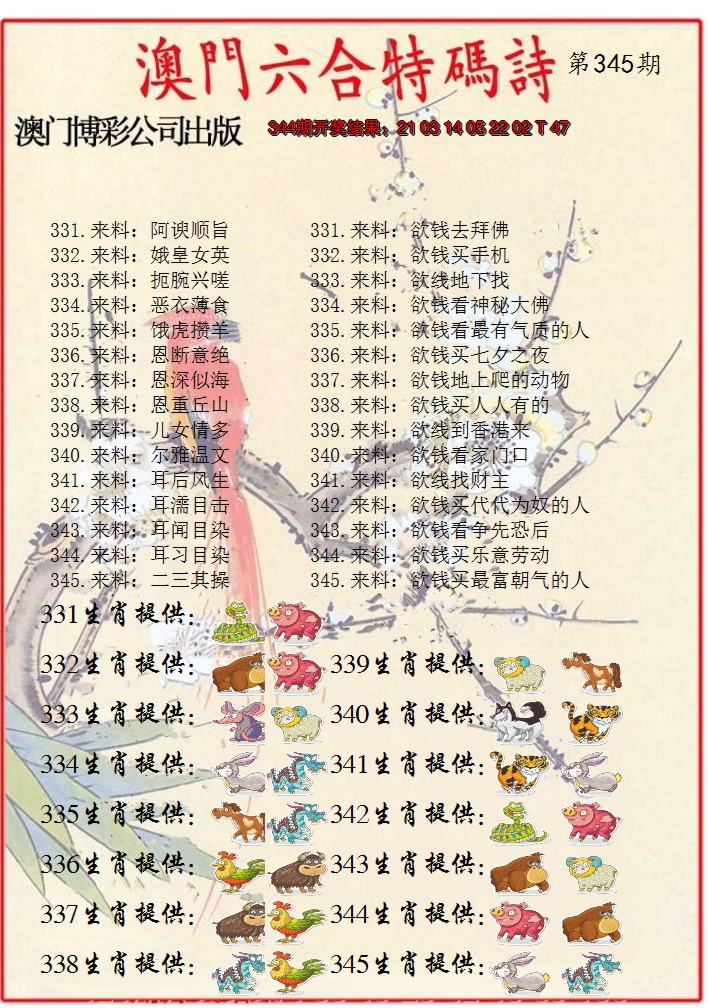 澳門六合特碼詩 第345期
澳门博彩公司出版 344期开奖结果：21 03 14 05 22 02 T 47
331.来料：阿谀顺旨 331.来料：欲钱去拜佛
332.来料：娥皇女英 332.来料：欲钱买手机
333.来料：扼腕兴嗟 333.来料：欲线地下找
334.来料：恶衣薄食 334.来料：欲钱看神秘大佛
335.来料：饿虎攒羊 335.来料：欲钱看最有气质的人
336.来料：恩断意绝 336.来料：欲钱买七夕之夜
337.来料：恩深似海 337.来料：欲钱地上爬的动物
338.来料：恩重丘山 338.来料：欲钱买人人有的
339.来料：儿女情多 339.来料：欲线到香港来
340.来料：尔雅温文 340.来料：欲钱看家门口
341.来料：耳后风生 341.来料：欲线找财主
342.来料：耳濡目击 342.来料：欲钱买代代为奴的人
343.来料：耳闻目染 343.来料：欲钱看争先恐后
344.来料：耳习目染 344.来料：欲钱买乐意劳动
345.来料：二三其操 345.来料：欲钱买最富朝气的人
331生肖提供：
332生肖提供： 339生肖提供：
333生肖提供： 340生肖提供：
334生肖提供： 341生肖提供：
335生肖提供： 342生肖提供：
336生肖提供： 343生肖提供：
337生肖提供： 344生肖提供：
338生肖提供： 345生肖提供：